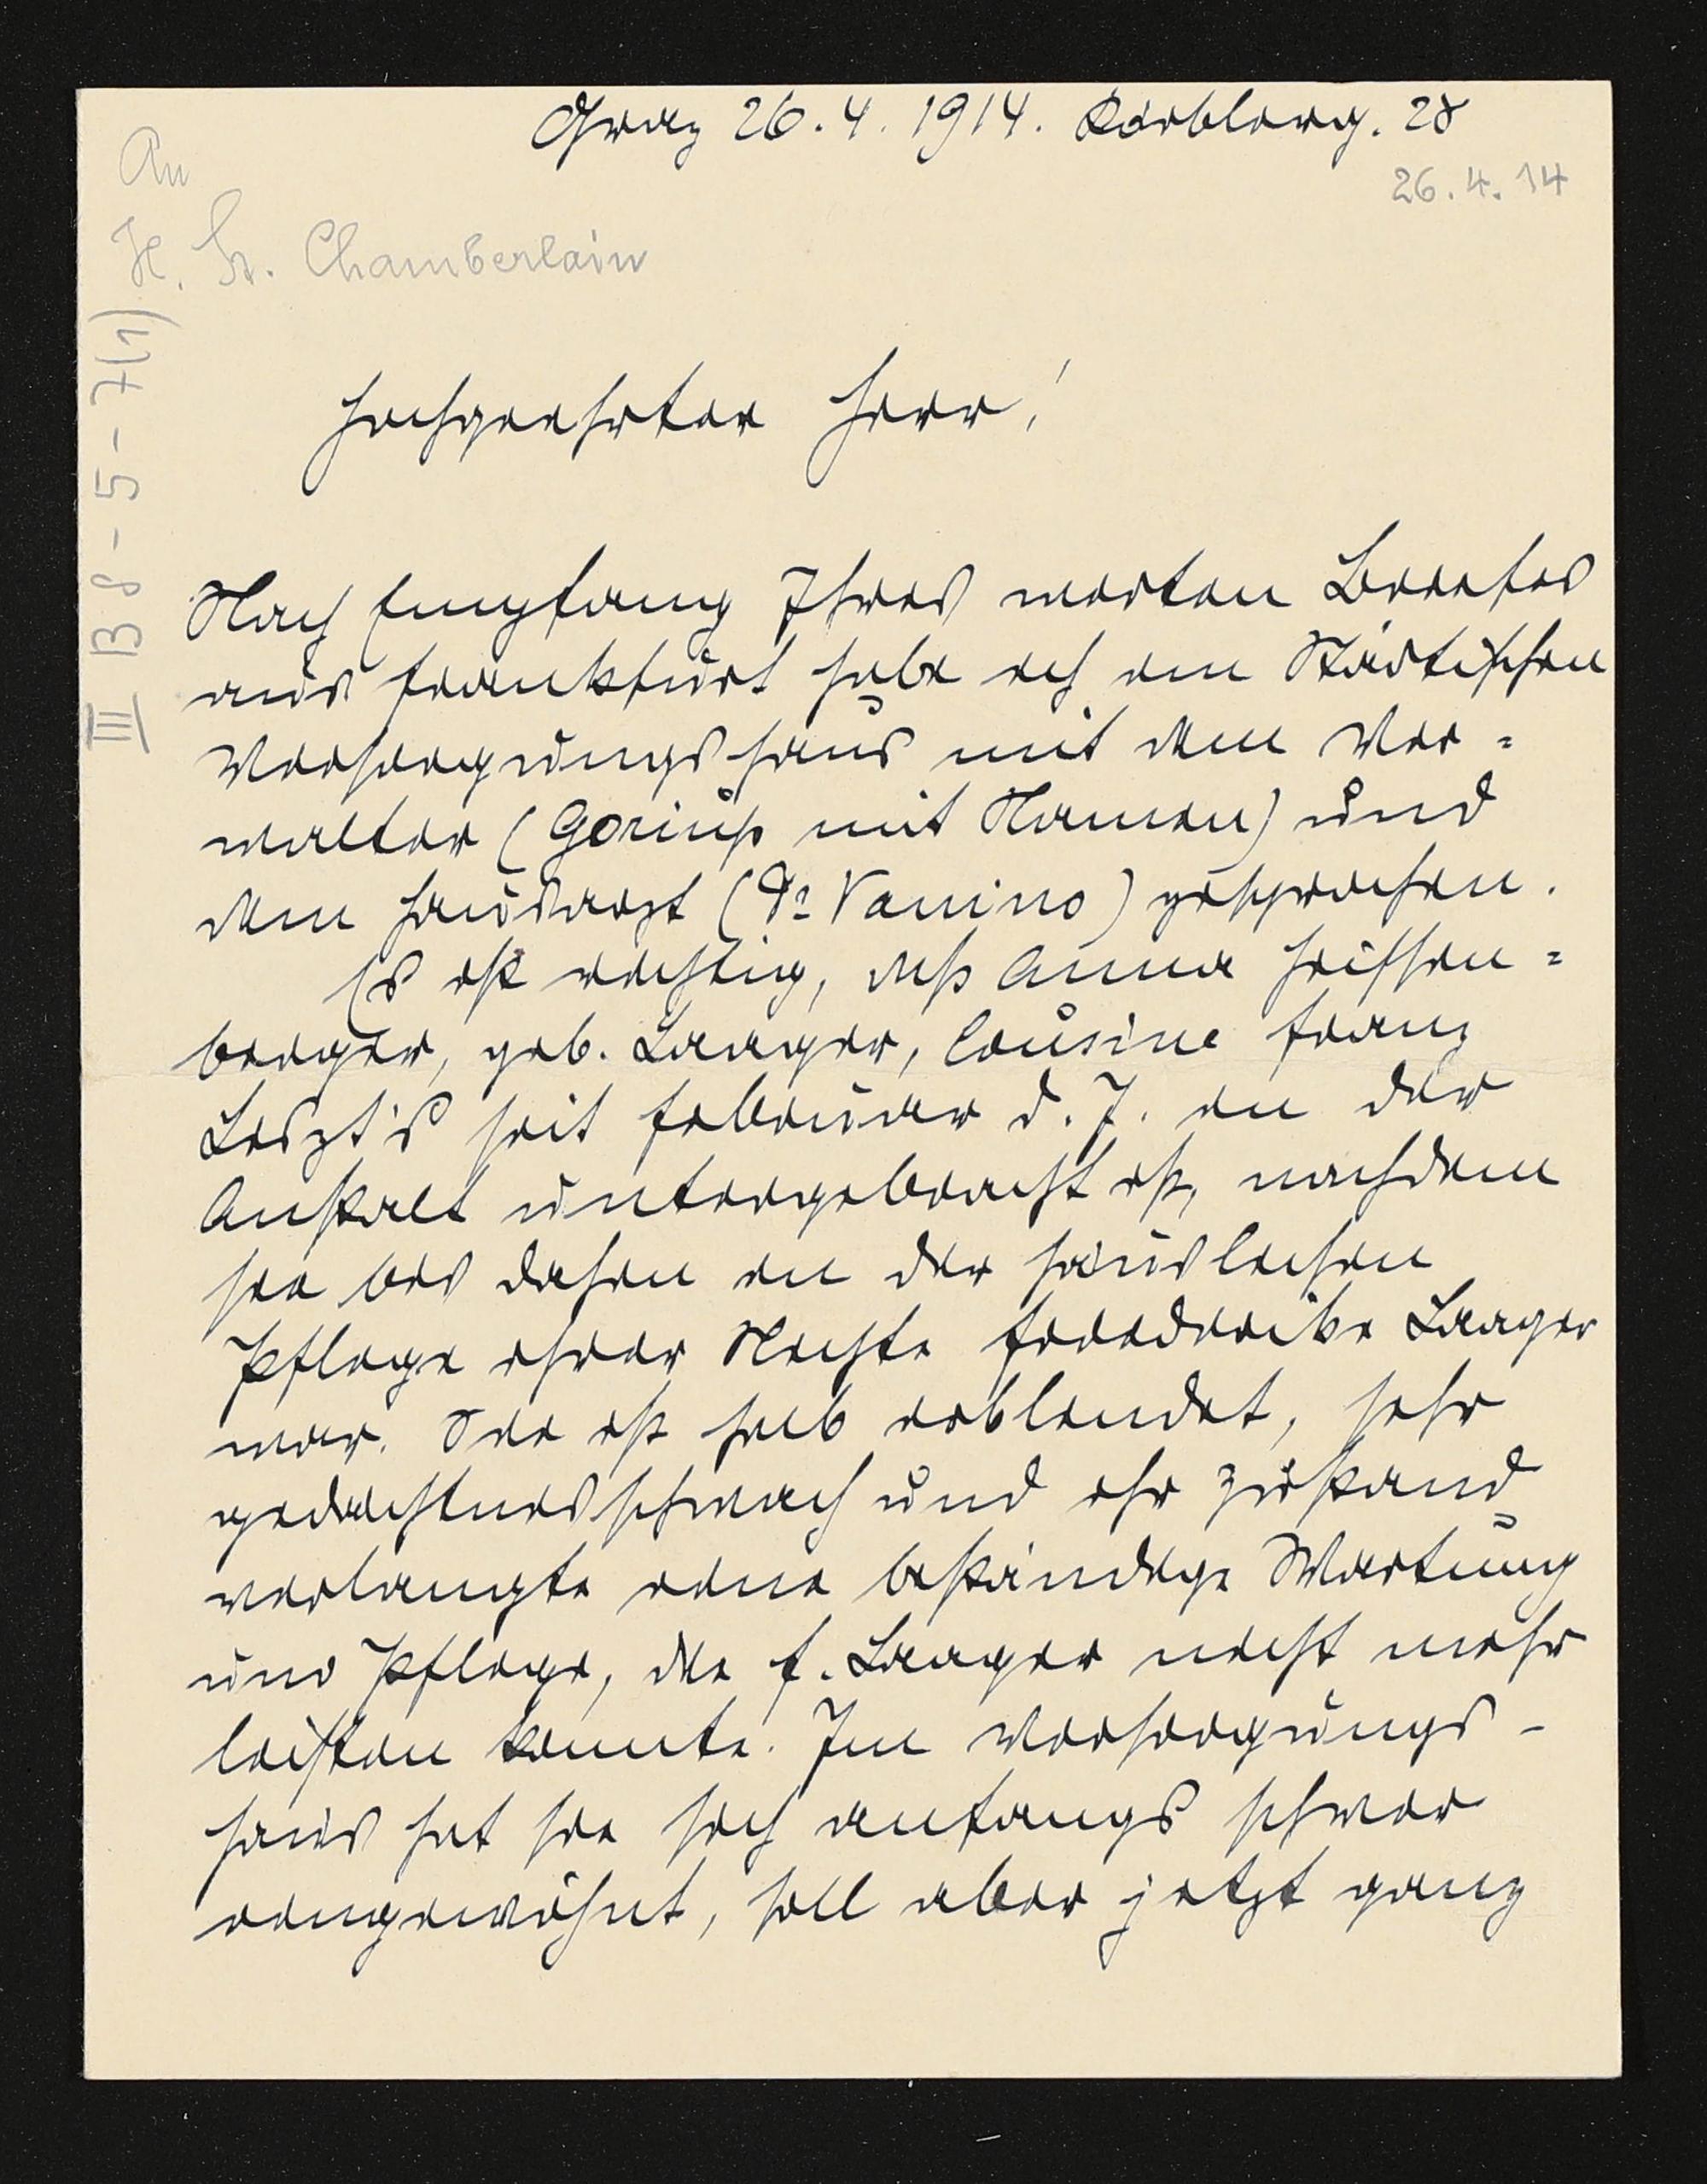 Graz 26.4. 1914. Körblerg. 28
26.4.14
An
H. St. Chamberlain
III B 8-5-7(1)
Hochgeehrter Herr!
Nach Empfang Ihres werten Briefes
aus Frankfurt habe ich im Städtischen
Versorgungshaus mit dem Ver=
walter (Goriup mit Namen) und
dem Hausarzt (Dr Vanino) gesprochen.
Es ist richtig, daß Anna Heissen=
berger, geb. Laager, Cousine Franz
Liszt's seit Februar d. J. in der
Anstalt untergebracht ist, nachdem
sie bis dahin in der häuslichen
Pflege ihrer Nichte Friederike Laager
war. Sie ist halb erblindet, sehr
gedächtnisschwach und ihr Zustand
verlangte eine beständige Wartung
und Pflege, die F. Laager nicht mehr
leisten konnte. Im Versorgungs-
haus hat sie sich anfangs schwer
eingewöhnt, soll aber jetzt ganz